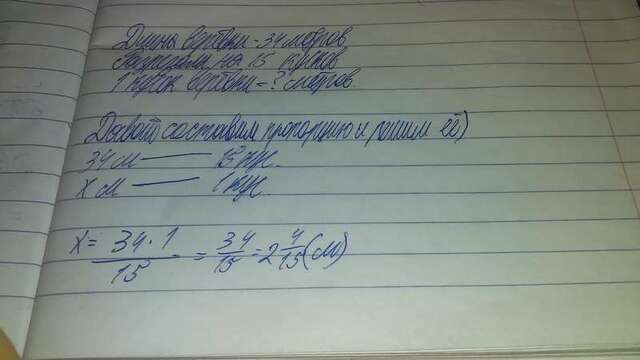 Длина верёвки - 34 метров
Разрезали на 15 кусков
1 кусок верёвки - ? метров.
Давайте составим пропорцию и решим её)
34 м — 15 кус.
x м — 1 кус.
x = 34 · 1 / 15 = 34/15 = 2 4/15 (м)